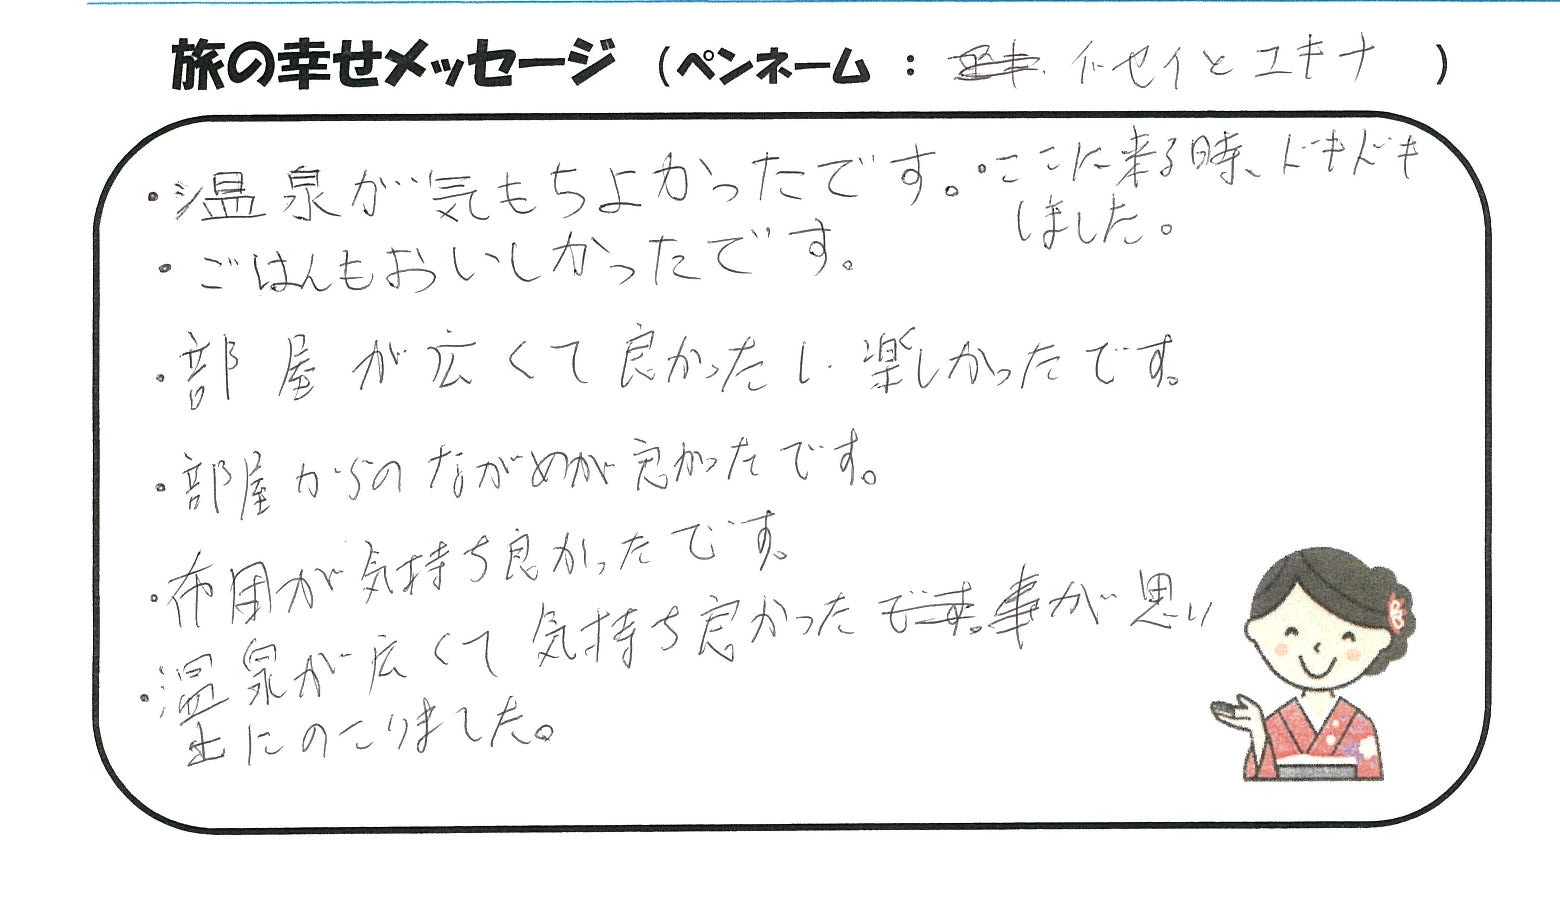 旅の幸せメッセージ (ペンネーム : イセイとユキナ )
・温泉が気もちよかったです。
・ここに来る時、ドキドキ
しました。
・ごはんもおいしかったです。
・部屋が広くて良かったし楽しかったです。
・部屋からのながめが良かったです。
・布団が気持ち良かったです。
・温泉が広くて気持ち良かった事が思い
出にのこりました。